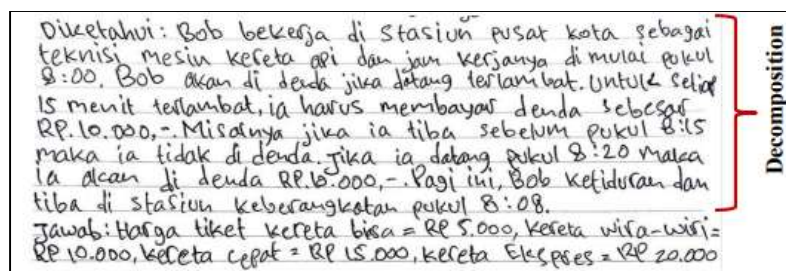 Diketahui: Bob bekerja di stasiun pusat kota sebagai
teknisi mesin kereta api dan jam kerjanya di mulai pukul
8:00. Bob akan di denda jika datang terlambat. Untuk setiap
15 menit terlambat, ia harus membayar denda sebesar
RP. 10.000,-. Misalnya jika ia tiba sebelum pukul 8:15
maka ia tidak di denda. Jika ia datang pukul 8:20 maka
ia akan di denda RP. 10.000,-. Pagi ini, Bob ketiduran dan
tiba di stasiun keberangkatan pukul 8:08.
Jawab: Harga tiket kereta bisa = RP 5.000, kereta wira-wiri =
RP 10.000, kereta cepat = RP 15.000, kereta Ekspres = RP 20.000
Decomposition